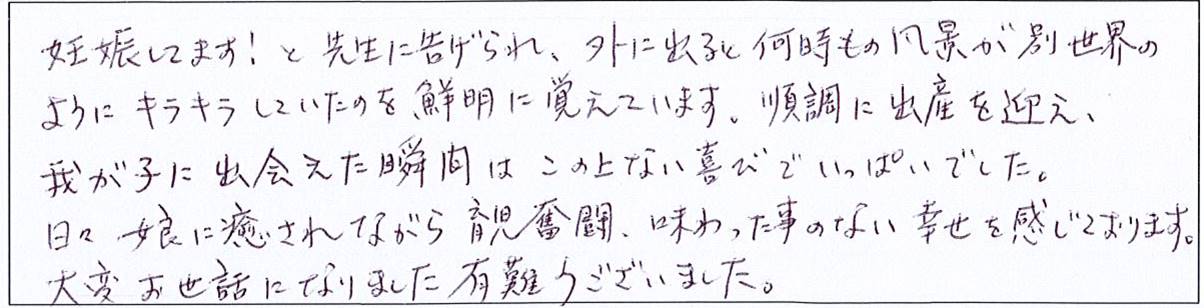 妊娠してます!と先生に告げられ、外に出ると何時もの風景が別世界の
ようにキラキラしていたのを鮮明に覚えています。順調に出産を迎え、
我が子に出会えた瞬間はこの上ない喜びでいっぱいでした。
日々娘に癒されながら育児奮闘、味わった事のない幸せを感じております。
大変お世話になりました有難うございました。